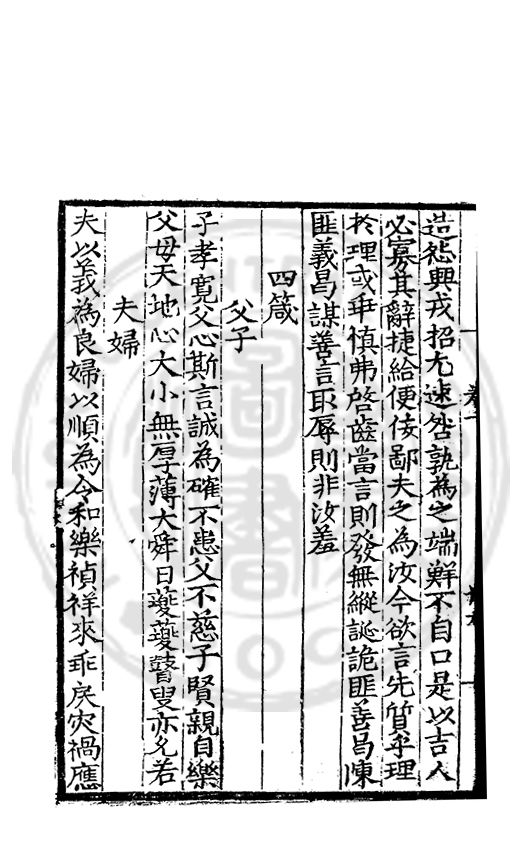 造愆興戎招尤速咎孰為之端鮮不自口是以吉人
必寡其辭捷給便佞鄙夫之為汝今欲言先質乎理
於理或乖慎弗啓齒當言則發無縱誕詭匪善曷陳
匪義曷謀善言取辱則非汝羞
四箴
父子
子孝寛父心斯言誠為確不患父不慈子賢親自樂
父母天地心大小無厚薄大舜日夔夔瞽叟亦允若
夫婦
夫以義為良婦以順為令和樂禎祥來乖戾灾禍應